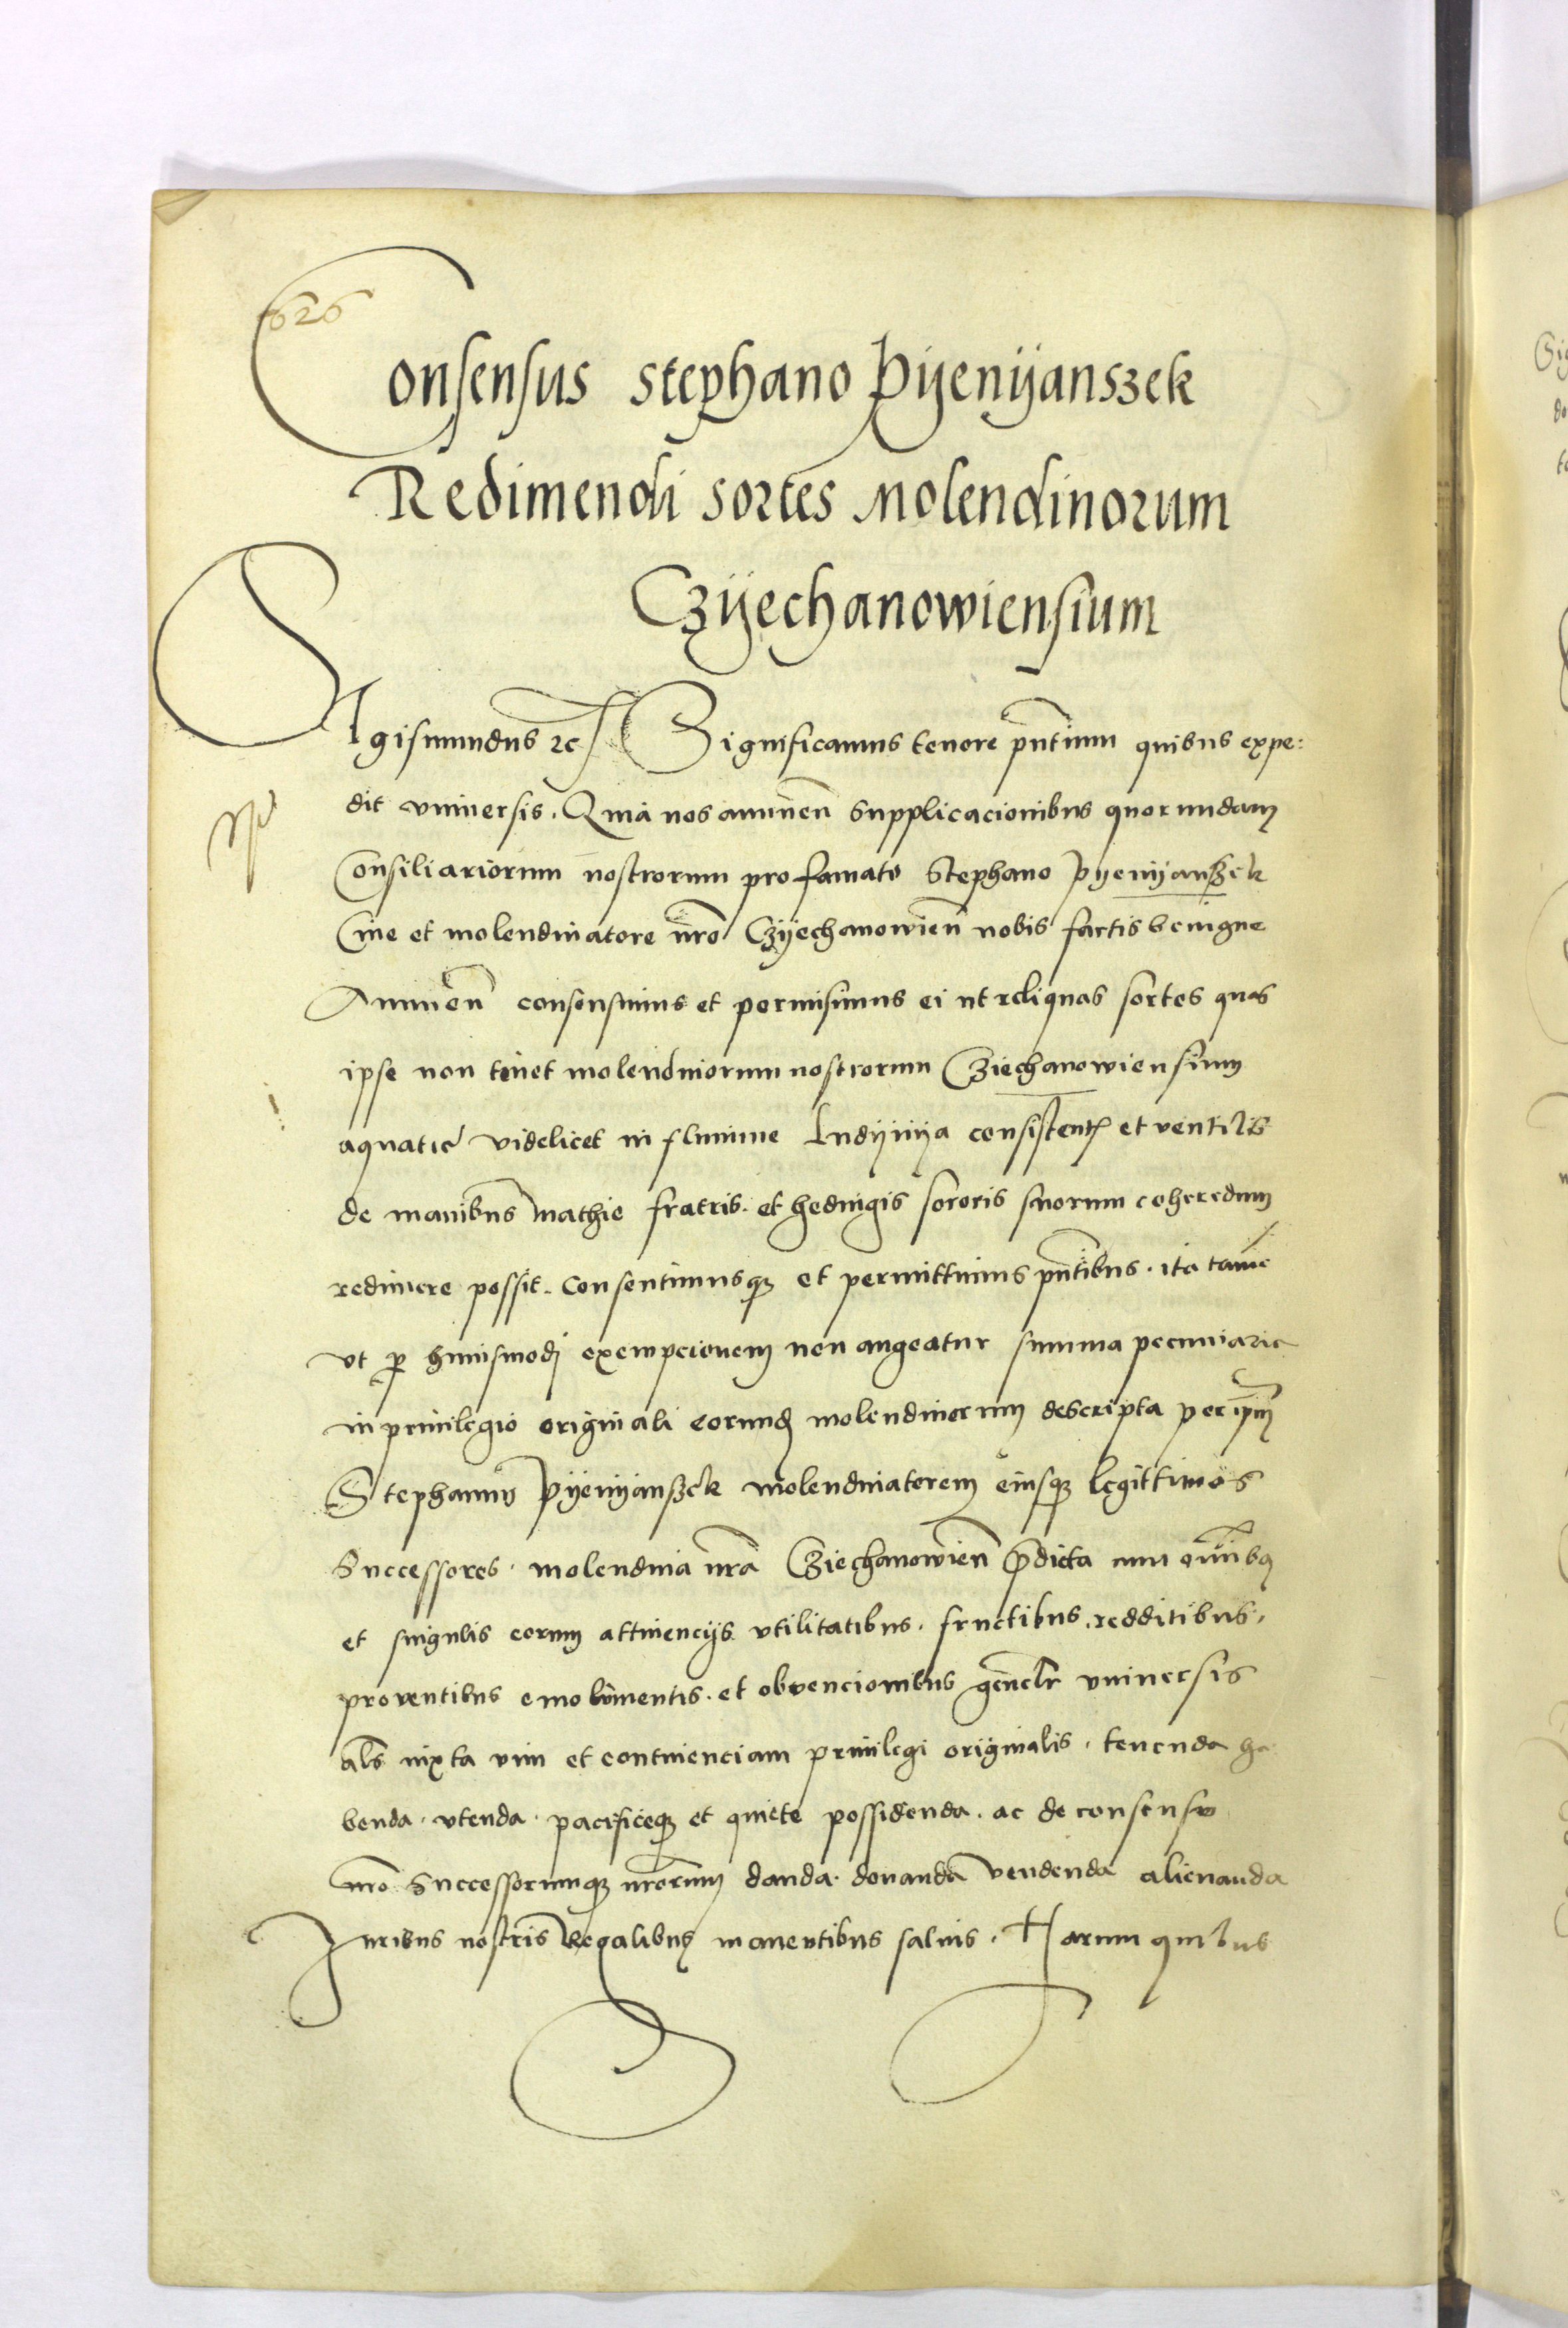 626
Consensus Stephano Pyenyanszek
Redimendi sortes Molendinorum
Czyechanowiensium
SIgismundus etc Significamus tenore pntium quibus expe:
dit vniversis. Quia nos annuen supplicacionibus quorundam
Consiliariorum nostrorum pro famato Stephano Pyenyanszek
Cive et molendinatore nro Czyechanowien nobis factis benigne
Annuen consensimus et permisimus ei ut reliquas sortes quas
ipse non tenet molendinorum nostrorum Cziechanowiensium
aquatic videlicet in flumine Lydynya consistent et ventilis
de manibus Mathie fratris. et hedvigis sororis suorum coheredum
redimere possit. Consentimusq et permittimus pntibus. ita tame
vt p huiusmodj exempcionem non augeatur summa pecuniaria
in privilegio originali eorund molendinorum descripta per ipm
Stephanum Pyenyanszek molendinatorem eiusq legittimos
Successores. molendina nra Cziechanowien pdicta cum omnibq
et singulis eorum attinencijs vtilitatibus. fructibus, redditibus,
proventibus emolumentis. et obvencionibus genelr vniversis
als iuxta vim et continenciam privilegi originalis. tenenda ha
benda. vtenda. pacificeq et quiete possidenda. ac de consensu
nro Successorumq nrorum danda. donanda vendenda alienanda
Iuribus nostris Regalibus manentibus salvis. Harum quibus